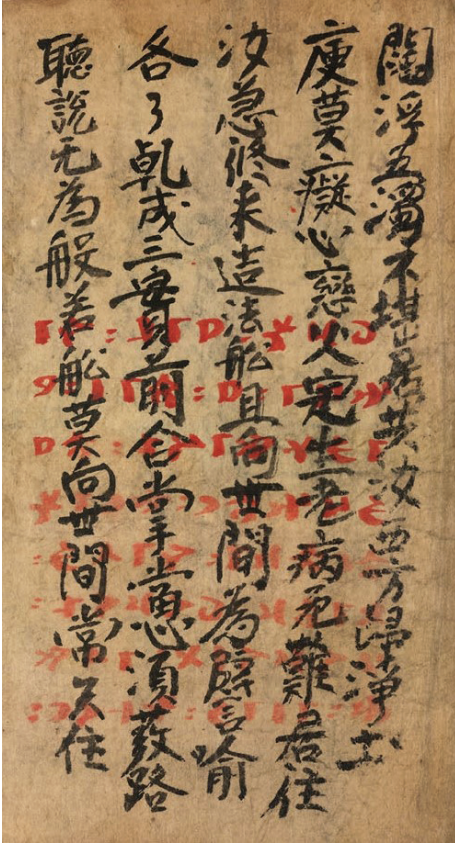 閻浮五濁不堪居共汝西方歸淨土
庚莫癡心戀火宅生老病死難君住
汝急修未造法舩且向世間為譬喻
各了乹成三寳前合掌當心須發路
聽說无為般若舩莫向世間常久住